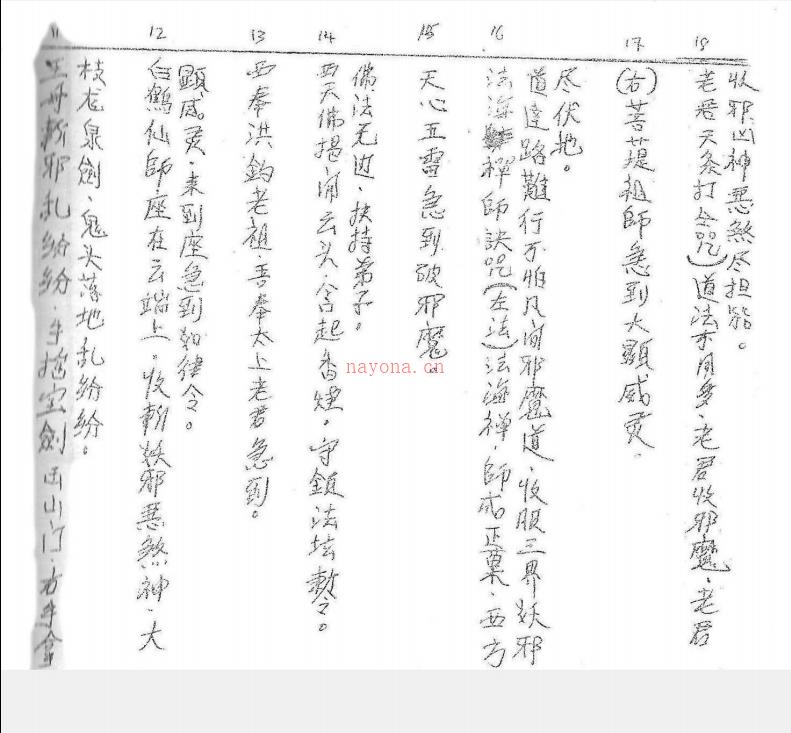 11
王母斬邪乱纷纷、手拿宝劍出山门、右手拿
枝龙泉劍、鬼头落地乱纷纷。
12
白鶴仙師座在云端上、收斬妖邪惡煞神、大
顕威灵、来到座急到如律令。
13
西奉洪鈞老祖、吾奉太上老君急到。
14
西天佛揭、闹云头、含起香煙。守鎮法坛敕令。
佛法无边、扶持弟子。
15
天心五雷急到破邪魔、
16
法海禅師訣咒(左法)法海禅師成正菓、西方
道達路難行不怕凡间邪魔道、收服三界妖邪
尽伏地。
17
(右)菩提祖師急到大顕威灵、
18
老君天打全咒)道法亦用多、老君收邪魔、老君
收邪凶神惡煞尽担
nayona.cn